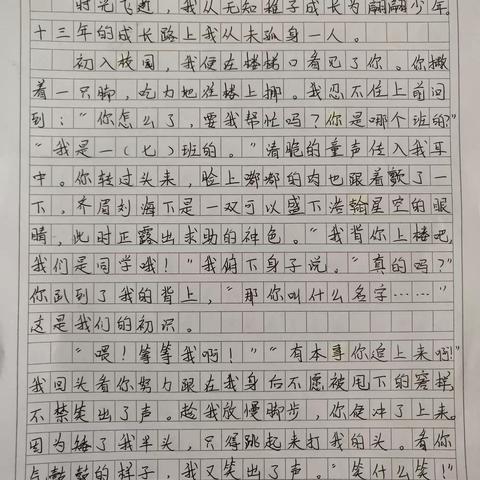 时光飞逝，我从无知稚子成长为翩翩少年。
十三年的成长路上我从未孤身一人。
初入校园，我便在楼梯口看见了你。你撇
着一只脚，吃力地往楼上挪。我忍不住上前问
到：“你怎么了，要我帮忙吗？你是哪个班的？”
“我是一（七）班的。”清脆的童声传入我耳
中。你转过头来，脸上嘟嘟的肉也跟着颤了一
下，齐眉刘海下是一双可以盛下浩翰星空的眼
睛，此时正露出求助的神色。“我背你上楼吧，
我们是同学哦！”我俯下身子说。“真的吗？”
你趴到了我的背上，“那你叫什么名字……”
这是我们的初识。
“喂！等等我啊！”“有本事你追上来啊！”
我回头看你努力跟在我身后不愿被甩下的窘样，
不禁笑出了声。趁我放慢脚步，你便冲了上来。
因为矮了我半头，只得跳起来打我的头。看你
气鼓鼓的样子，我又笑出了声。“笑什么笑！”